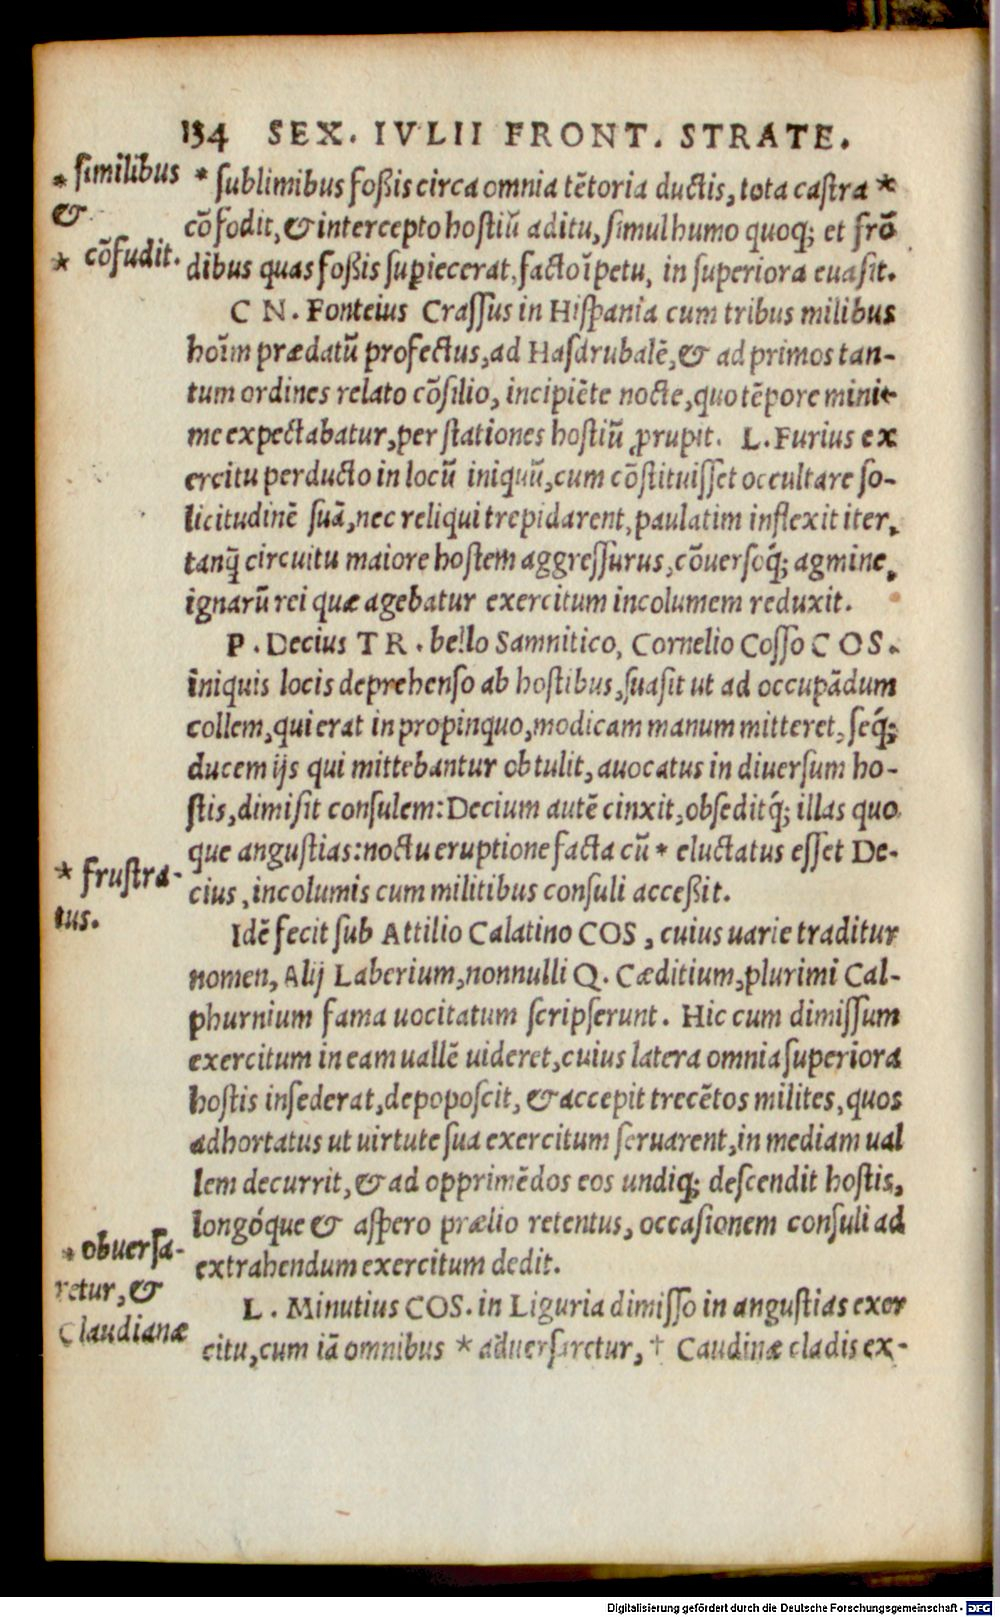 134 SEX. IVLII FRONT. STRATE.
* similibus
&
* cõfudit.
* sublimibus foßis circa omnia tẽtoria ductis, tota castra *
cõfodit, & intercepto hostiũ aditu, simul humo quoq; et frõ
dibus quas foßis supiecerat, facto ĩpetu, in superiora euasit.
C N. Fonteius Crassus in Hispania cum tribus milibus
hoĩm prædatũ profectus, ad Hasdrubalẽ, & ad primos tan-
tum ordines relato cõsilio, incipiẽte nocte, quo tẽpore mini-
me expectabatur, per stationes hostiũ ꝓrupit. L. Furius ex
ercitu perducto in locũ iniquũ, cum cõstituisset occultare so-
licitudinẽ suã, nec reliqui trepidarent, paulatim inflexit iter,
tanq̃ circuitu maiore hostem aggressurus, cõuersoq́; agmine,
ignarũ rei quæ agebatur exercitum incolumem reduxit.
P. Decius T R. bello Samnitico, Cornelio Cosso C O S.
iniquis locis deprehenso ab hostibus, suasit ut ad occupãdum
collem, qui erat in propinquo, modicam manum mitteret, seq́;
ducem ijs qui mittebantur obtulit, auocatus in diuersum ho-
stis, dimisit consulem: Decium autẽ cinxit, obseditq́; illas quo
que angustias: noctu eruptione facta cũ * eluctatus esset De-
cius, incolumis cum militibus consuli acceßit.
* frustra-
tus.
Idẽ fecit sub Attilio Calatino COS, cuius uarie traditur
nomen, Alij Laberium, nonnulli Q. Cæditium, plurimi Cal-
phurnium fama uocitatum scripserunt. Hic cum dimissum
exercitum in eam uallẽ uideret, cuius latera omnia superiora
hostis insederat, depoposcit, & accepit trecẽtos milites, quos
adhortatus ut uirtute sua exercitum seruarent, in mediam ual
lem decurrit, & ad opprimẽdos eos undiq; descendit hostis,
longóque & aspero prælio retentus, occasionem consuli ad
extrahendum exercitum dedit.
* obuersa-
retur, &
Claudianæ
L. Minutius COS. in Liguria dimisso in angustias exer
citu, cum iã omnibus * aduersaretur, † Caudinæ cladis ex-
Digitalisierung gefördert durch die Deutsche Forschungsgemeinschaft - DFG